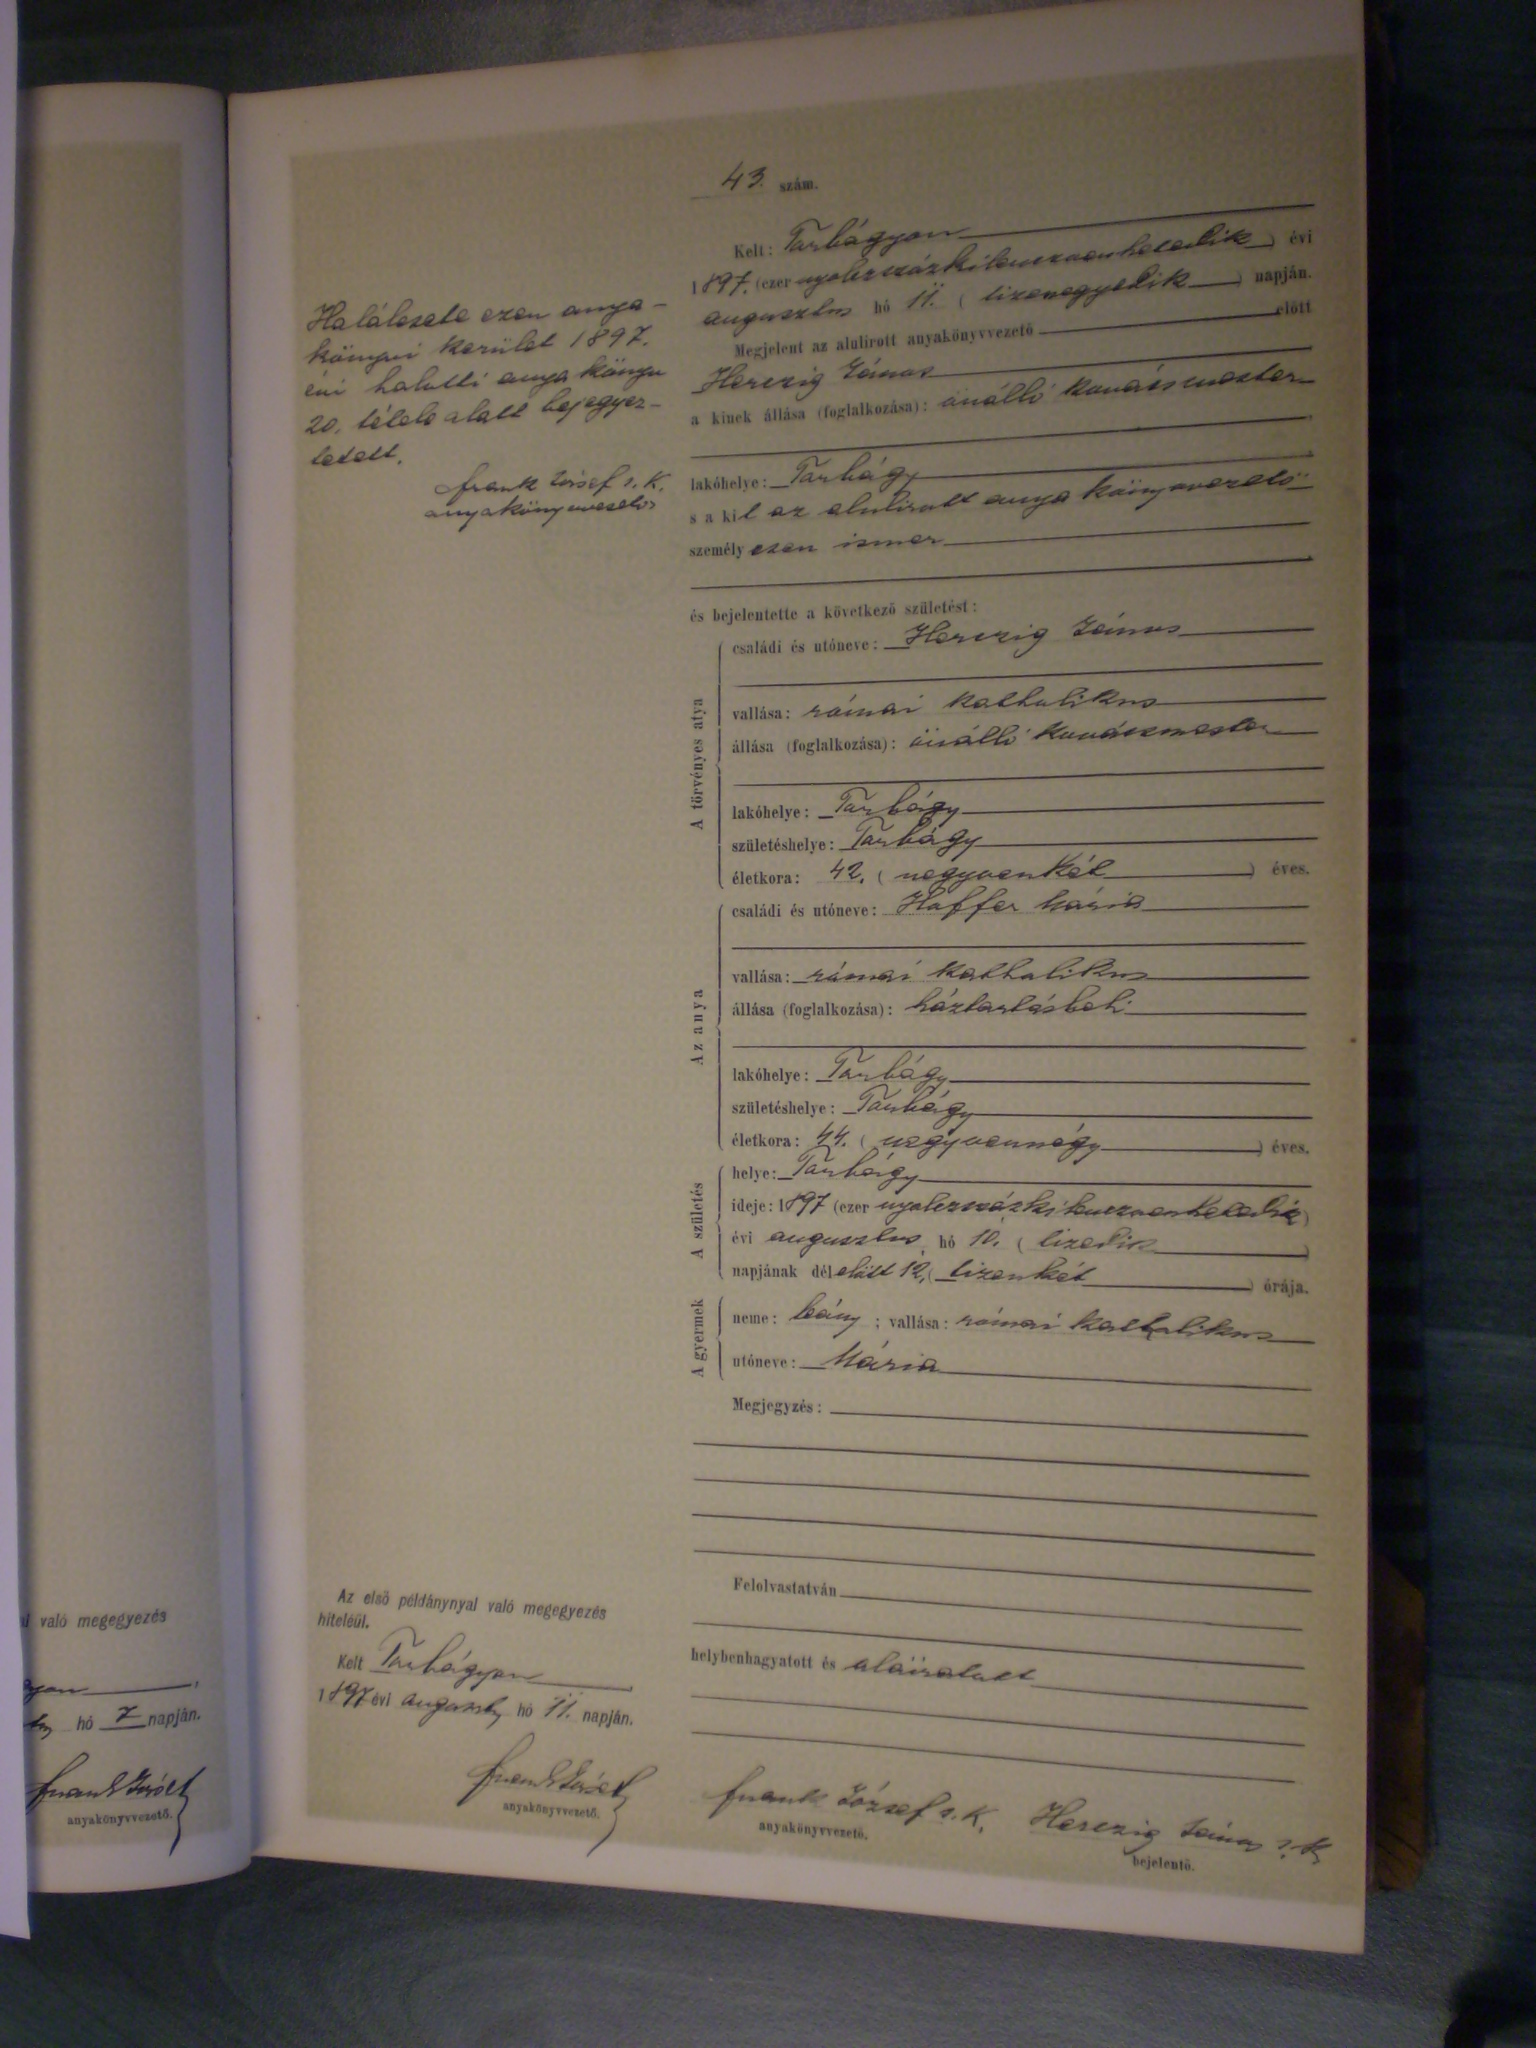 43. szám.
Kelt: Torbágyon
1897. (ezer nyolczszázkilenczvenhetedik) évi
augusztus hó 11. (tizenegyedik) napján.
Megjelent az alulírott anyakönyvvezető előtt
Herczig János
a kinek állása (foglalkozása): önálló kovácsmester
lakóhelye: Torbágy
s a kit az alulírott anyakönyvvezető
személyesen ismer
és bejelentette a következő születést:
A törvényes atya
családi és utóneve: Herczig János
vallása: római katholikus
állása (foglalkozása): önálló kovácsmester
lakóhelye: Torbágy
születéshelye: Torbágy
életkora: 42. (negyvenkét) éves.
Az anya
családi és utóneve: Haffer Mária
vallása: római katholikus
állása (foglalkozása): háztartásbeli
lakóhelye: Torbágy
születéshelye: Torbágy
életkora: 44. (negyvennégy) éves.
A születés
helye: Torbágy
ideje: 1897 (ezer nyolczszázkilenczvenhetedik)
évi augusztus hó 10. (tizedik)
napjának délelőtt 12. (tizenkét) órája.
A gyermek
neme: leány; vallása: római katholikus
utóneve: Mária
Megjegyzés:
Felolvastatván
helybenhagyatott és aláiratott
Frank József s. k.
anyakönyvvezető.
Herczig János s. k.
bejelentő.
Halálesete ezen anya-
könyvi kerület 1897.
évi halotti anyakönyv
20. tétele alatt bejegyez-
tetett.
Frank József s. k.
anyakönyvvezető
Az első példánynyal való megegyezés
hiteléül.
Kelt Torbágyon
1897 évi auguszt. hó 11. napján.
Frank József
anyakönyvvezető.
l való megegyezés
gyon
hó 7 napján.
Frank József
anyakönyvvezető.